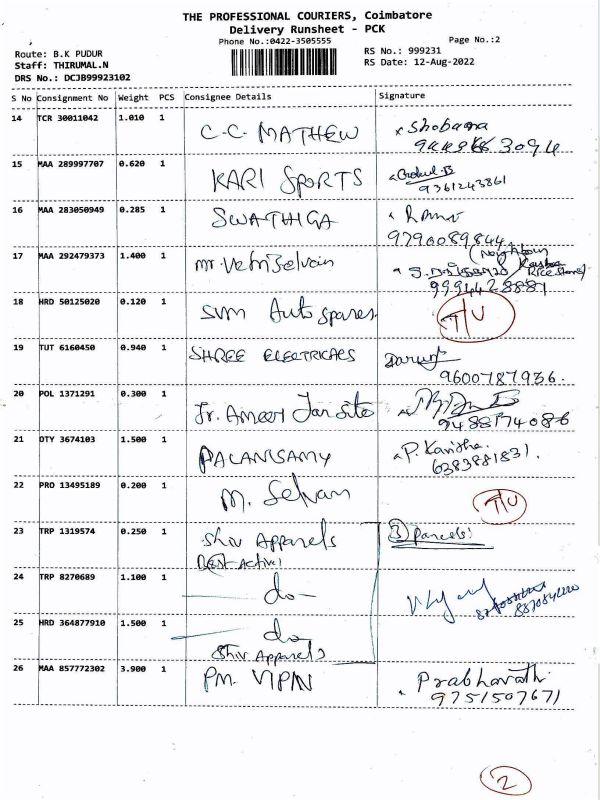 THE PROFESSIONAL COURIERS, Coimbatore
Delivery Runsheet - PCK
Phone No.:0422-3505555
Page No.:2
Route: B.K PUDUR
RS No.: 999231
Staff: THIRUMAL.N
RS Date: 12-Aug-2022
DRS No.: DCJB99923102
S No Consignment No Weight PCS Consignee Details Signature
14 TCR 30011042 1.010 1 C.C. MATHEW Shobana
15 MAA 289997707 0.620 1 KARI SPORTS Gokul.B
9361243861
16 MAA 283050949 0.285 1 SWATHIGA
9790089844
17 MAA 292479373 1.400 1 Mr. Vetri Selvan (Neighbour
9994428881
18 HRD 50125020 0.120 1 SVM Auto spares T/U
19 TUT 6160450 0.940 1 SHREE ELECTRICALS
9600787936.
20 POL 1371291 0.300 1 Jr. Ameer
9488174086
21 OTY 3674103 1.500 1 PALANISAMY P. Kavitha.
6383881831.
22 PRO 13495189 0.200 1 M. Selvan T/U
23 TRP 1319574 0.250 1 Shiv Apparels (3) Parcels
(Best Active)
24 TRP 8270689 1.100 1 -do-
25 HRD 364877910 1.500 1 -do-
Shiv Apparels
26 MAA 857772302 3.900 1 PM. VIPIN Prabhavathi
9751507671
2